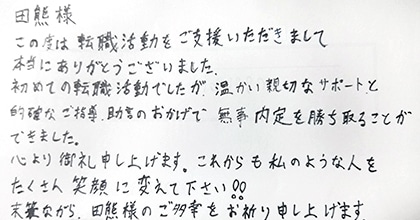 田熊様
この度は転職活動をご支援いただきまして
本当にありがとうございました。
初めての転職活動でしたが、温かい親切なサポートと
的確なご指導、助言のおかげで 無事 内定を勝ち取ることが
できました。
心より御礼申し上げます。これからも私のような人を
たくさん 笑顔に変えて下さい!!
末筆ながら、田熊様のご多幸をお祈り申し上げます